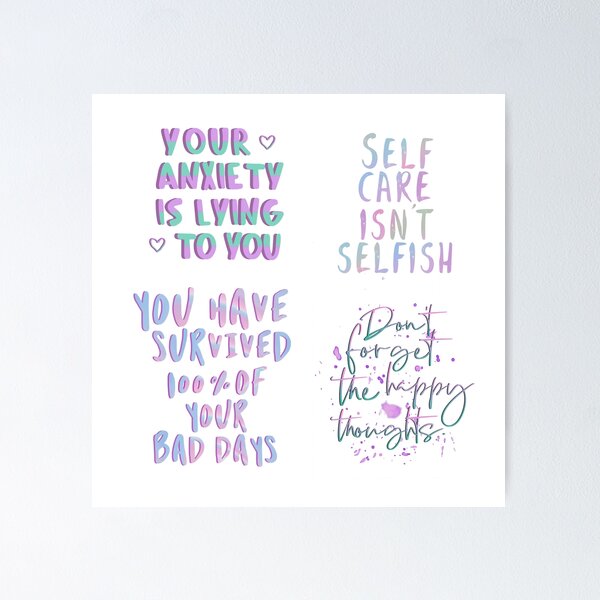 YOUR
ANXIETY
IS LYING
TO YOU
SELF
CARE
ISN'T
SELFISH
YOU HAVE
SURVIVED
100% OF
YOUR
BAD DAYS
Don't
forget
the happy
thoughts